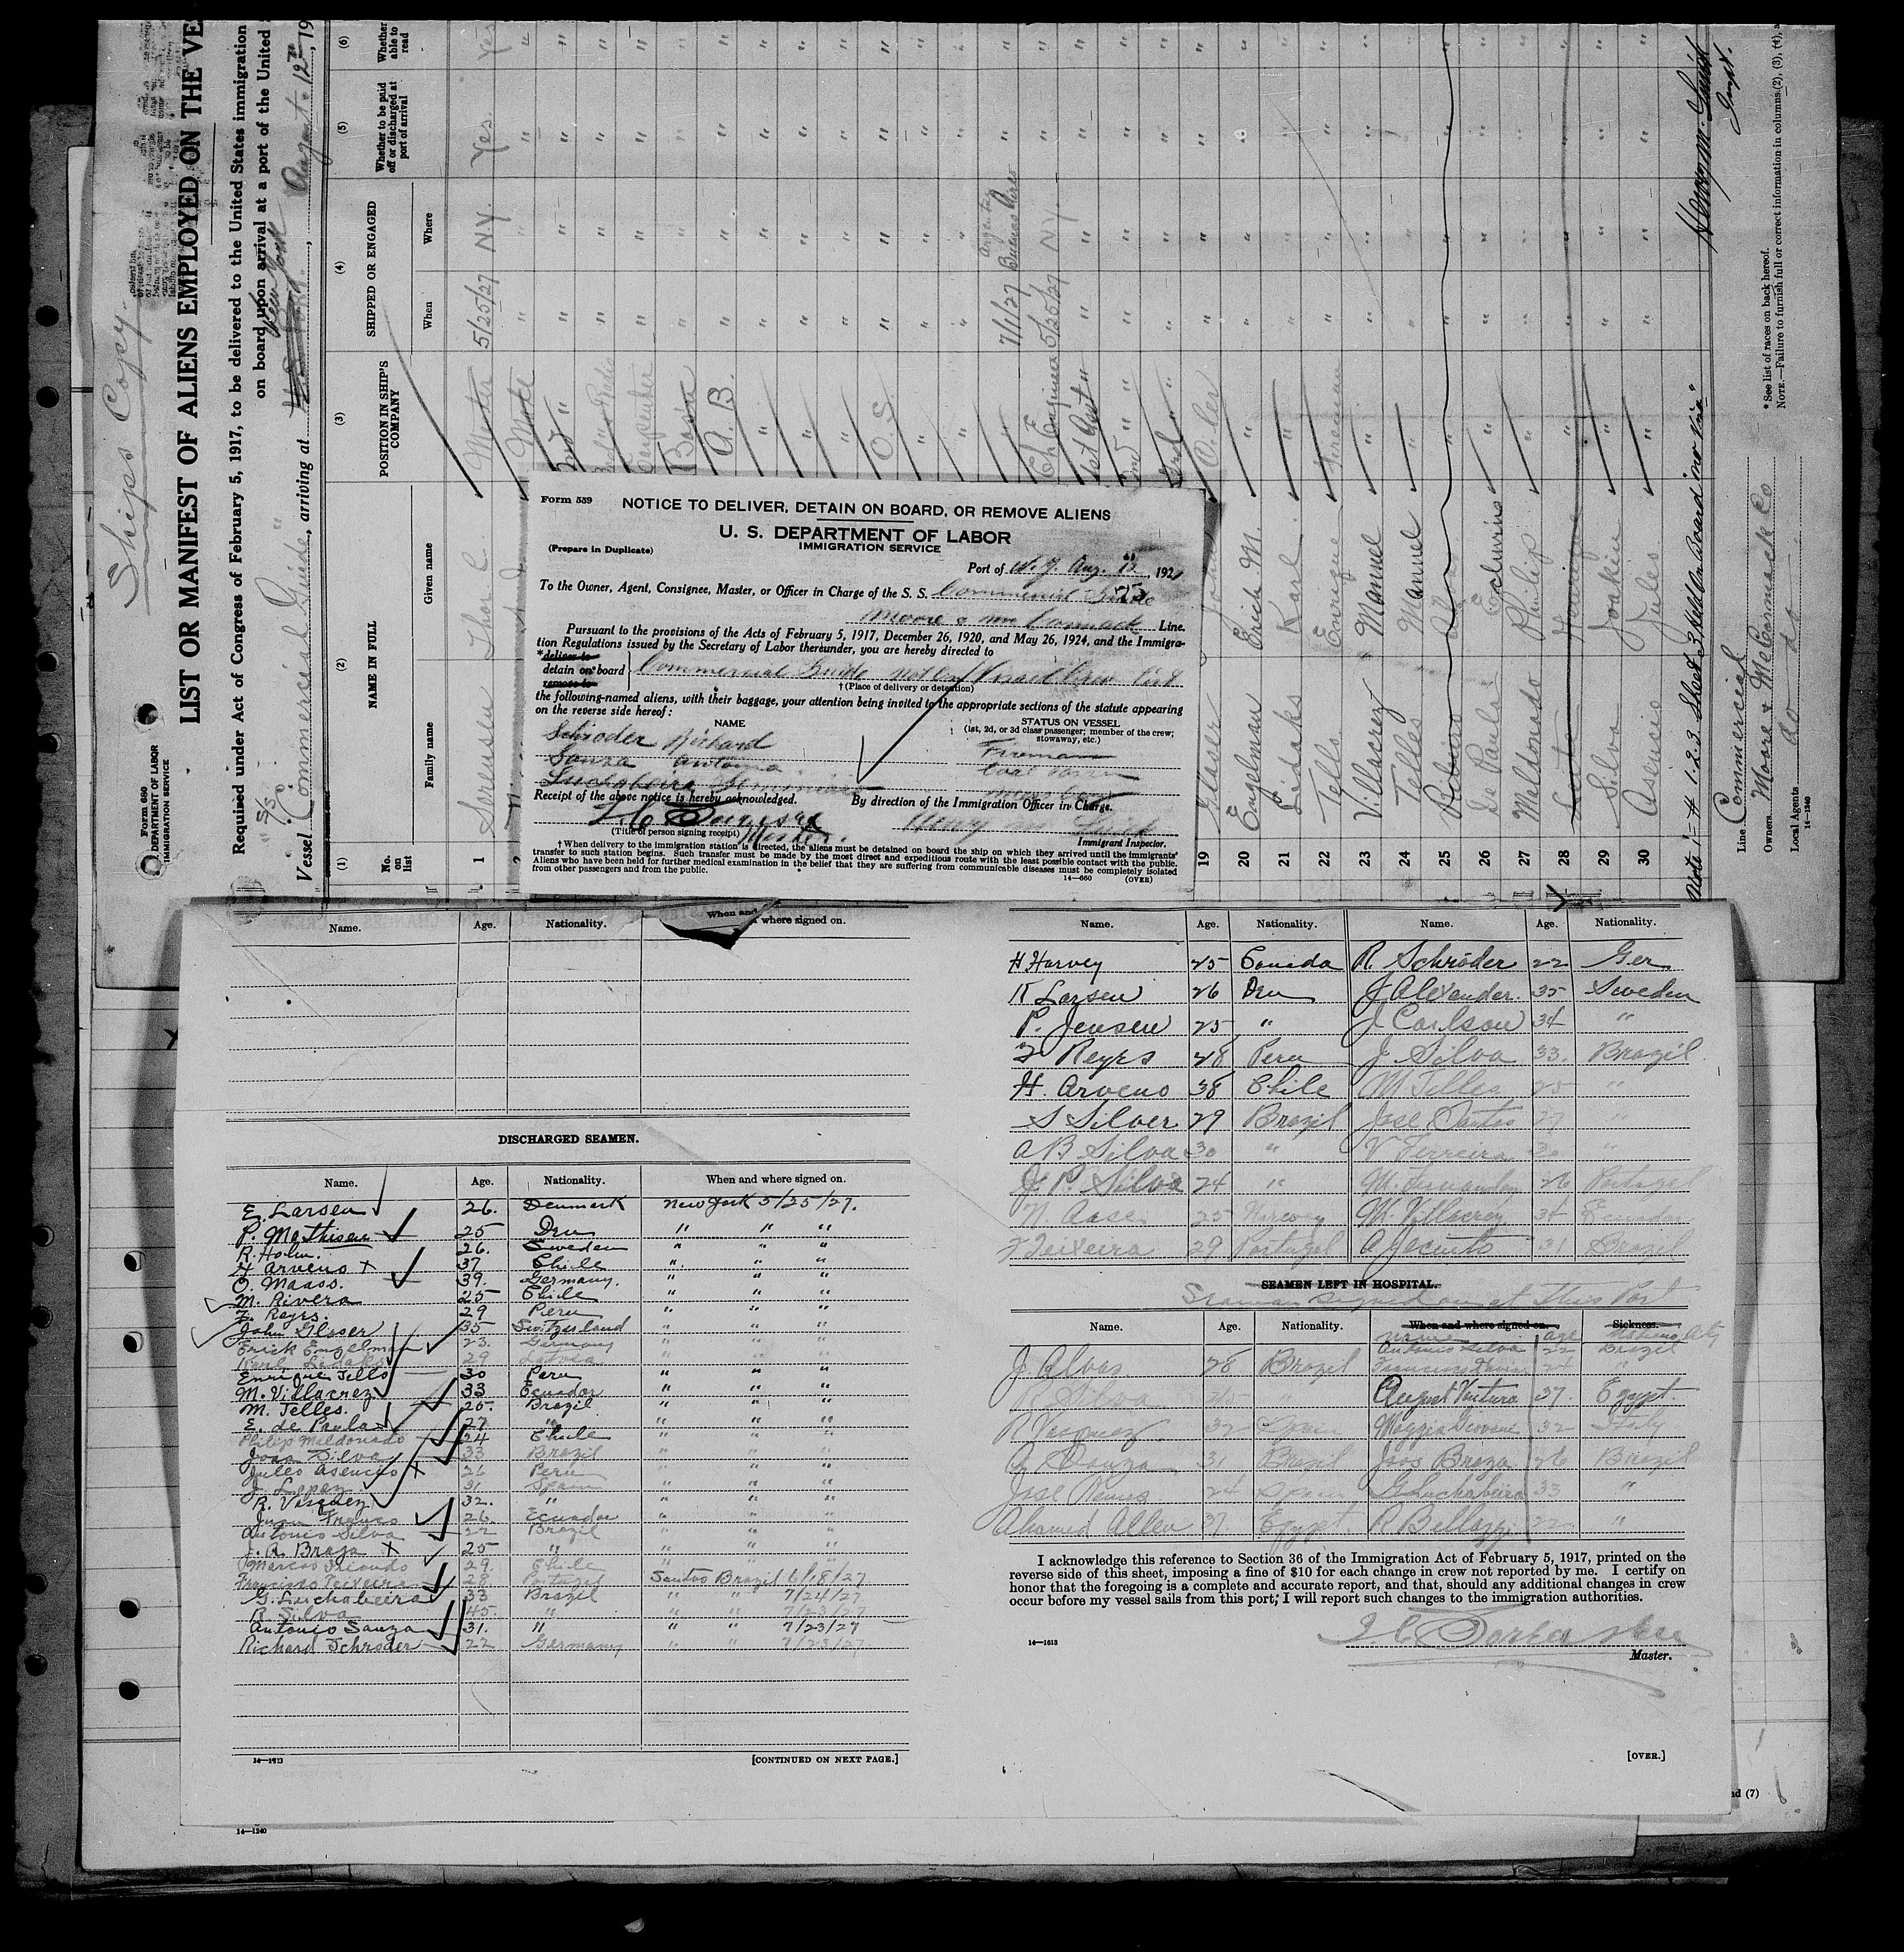 Ships Copy
Form 680
DEPARTMENT OF LABOR
IMMIGRATION SERVICE
LIST OR MANIFEST OF ALIENS EMPLOYED ON THE VE
Required under Act of Congress of February 5, 1917, to be delivered to the United States immigration
on board upon arrival at a port of the United
New York
Vessel "S/S Commercial Guide", arriving at August 12th, 19
(1) (2) (3) (4) (5) (6)
No. on list
NAME IN FULL
Family name Given name
POSITION IN SHIP'S COMPANY
SHIPPED OR ENGAGED
When Where
Whether to be paid off or discharged at port of arrival
Whether able to read
1 Sorensen Thor C. Master 5/25/27 N.Y. Yes Yes
2 Mate " " " "
2nd " " " " "
Carpenter " " " "
Bosun " " " "
A.B. " " " "
O.S. " " " "
Ch Engineer 7/1/27 Buenos Aires " "
1st Asst " 5/25/27 N.Y. " "
2nd " " " " " "
3rd " " " " " "
19 Glaser John Oiler " " " "
20 Engelman Erich M. " " " " "
21 Ledaks Karl " " " " "
22 Tello Enrique Fireman " " " "
23 Villacrez Manuel " " " " "
24 Telles Manuel " " " " "
25 " " " " "
26 De Paula " " " " "
27 Meldonado Philip " " " " "
28 " " " " "
29 Silva Joakin " " " " "
30 Asencio Jules " " " " "
Note:- # 1-2-3 Sheet 3 Held On Board "no visa"
Henry M. Smith
Inspt.
Line Commercial
Owners Moore & McCormack Co
Local Agents do do
14—1240
* See list of races on back hereof.
NOTE.—Failure to furnish full or correct information in columns (2), (3), (4),
Form 559
NOTICE TO DELIVER, DETAIN ON BOARD, OR REMOVE ALIENS
U. S. DEPARTMENT OF LABOR
IMMIGRATION SERVICE
(Prepare in Duplicate)
Port of N.Y. Aug. 12, 192
To the Owner, Agent, Consignee, Master, or Officer in Charge of the S. S. Commercial Guide
Moore & McCormack Line.
Pursuant to the provisions of the Acts of February 5, 1917, December 26, 1920, and May 26, 1924, and the Immigra-
tion Regulations issued by the Secretary of Labor thereunder, you are hereby directed to
*deliver to
detain on board Commercial Guide not on Visaed Crew List
remove to
† (Place of delivery or detention)
the following-named aliens, with their baggage, your attention being invited to the appropriate sections of the statute appearing
on the reverse side hereof:
NAME STATUS ON VESSEL
(1st, 2d, or 3d class passenger; member of the crew;
stowaway, etc.)
Schroder Richard Fireman
Sanza Antonia
Receipt of the above notice is hereby acknowledged. By direction of the Immigration Officer in Charge.
Henry M. Smith
(Title of person signing receipt) Master. Immigrant Inspector.
† When delivery to the immigration station is directed, the aliens must be detained on board the ship on which they arrived until the immigrants'
transfer to such station begins. Such transfer must be made by the most direct and expeditious route with the least possible contact with the public.
Aliens who have been held for further medical examination in the belief that they are suffering from communicable diseases must be completely isolated
from other passengers and from the public.
14—660 (OVER)
Name. Age. Nationality. When and where signed on.
DISCHARGED SEAMEN.
Name. Age. Nationality. When and where signed on.
E. Larsen 26. Denmark New York 5/25/27.
P. Mathisen 25 Den " " "
R. Holm. 26. Sweden " " "
H Arveno x 37 Chile " " "
O. Maass. 39. Germany. " " "
M. Rivera 25 Chile " " "
F. Reyrs. 29 Peru " " "
John Glaser 35 Switzerland " " "
Erick Engelman 23. Germany " " "
Karl Ladaks 29 Latvia " " "
Enrique Tello 30 Peru " " "
M. Villacrez 33 Ecuador " " "
M. Telles. 25. Brazil " " "
E. de Paula 27 " " " "
Philip Maldonado 24 Chile " " "
Joao Silva 33 Brazil " " "
Jules Asencio x 26 Peru " " "
J. Lopez 31 Spain " " "
R. Vasquez 32. " " " "
Juan Franco 26. Ecuador " " "
Antonio Silva 22 Brazil " " "
J. A. Braga x 25 " " " "
Marcos 29. Chile " " "
Francisco Teixeira 29 Portugal Santos Brazil 6/18/27
G. Luchabeira 33 Brazil " " 7/24/27
R. Silva 45. " " " 7/23/27
Antonio Sauza 31. " " " 7/23/27
Richard Schroder 22 Germany " " 7/23/27
14—1613 [CONTINUED ON NEXT PAGE.]
14—1240
Name. Age. Nationality. Name. Age. Nationality.
H Harvey 25 Canada R. Schröder 22 Ger
K Larsen 26 Den J Alexander. 35 Sweden
P. Jensen 25 " J Carlson 34 "
F Reyrs 28 Peru J Silva 33. Brazil.
H. Arveno 38 Chile M. Telles 25 "
S Silver 29 Brazil Jose Santos 27 "
A B Silva 30 " V Ferreira 30 "
J. P. Silva 24 " M. Fernandez 26 Portugal
N. Aase 25 Norway M. Villacrez 34 Ecuador
F Teixeira 29 Portugal A Jecinto 31 Brazil
SEAMEN LEFT IN HOSPITAL.
Seaman signed on at this Port
Name. Age. Nationality. When and where signed on. Sickness.
name age Nationality
J Alvas 28 Brazil Antonio Silva 22 Brazil
R Silva 45 24 "
August Ventura 37. Egypt
R Vasquez 32 Spain 32 Italy
A Sauza 31 Brazil Joos Braza 26 Brazil
Jose Ramus 24 Spain G Luchabeira 33 "
Ahamed Allen 37. Egypt. R Bellazzi 22 "
I acknowledge this reference to Section 36 of the Immigration Act of February 5, 1917, printed on the
reverse side of this sheet, imposing a fine of $10 for each change in crew not reported by me. I certify on
honor that the foregoing is a complete and accurate report, and that, should any additional changes in crew
occur before my vessel sails from this port, I will report such changes to the immigration authorities.
14—1613
Master.
[OVER.]
nd (7)